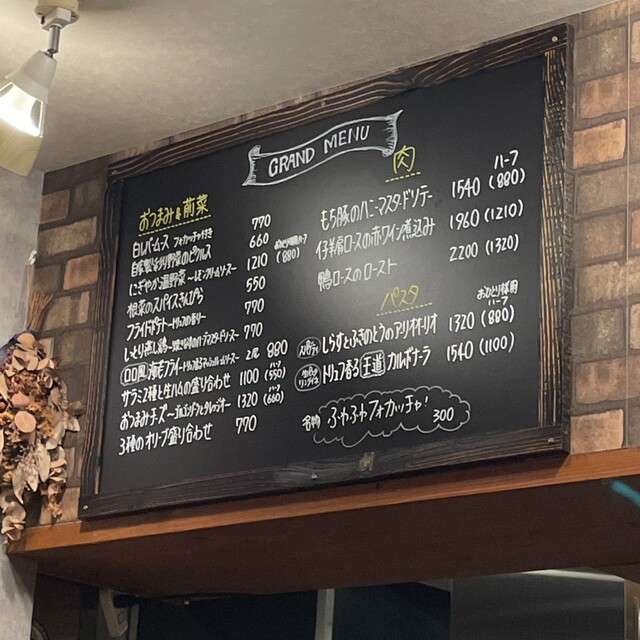 GRAND MENU
おつまみ&前菜
白レバームース フォカッチャ付き 770
自家製彩り野菜のピクルス 660
にぎやか温野菜 〜レモンクリームソース〜 1210 おひとり様用ハーフ (880)
根菜のスパイスきんぴら 550
フライドポテト 〜トリュフの香り〜 770
しっとり蒸し鶏 770
海老フライ 2尾 880
サラミ2種と生ハムの盛り合わせ 1100 ハーフ (550)
おつまみチーズ 〜ゴルゴンゾーラとタレッジオ〜 1320 ハーフ (660)
3種のオリーブ盛り合わせ 770
肉
ハーフ
もち豚のハニーマスタードソテー 1540 (880)
仔羊肩ロースの赤ワイン煮込み 1960 (1210)
鴨ロースのロースト 2200 (1320)
パスタ
おひとり様用
ハーフ
しらすとふきのとうのアーリオオーリオ 1320 (880)
トリュフ香る 王道 カルボナーラ 1540 (1100)
名物 ふわふわフォカッチャ! 300